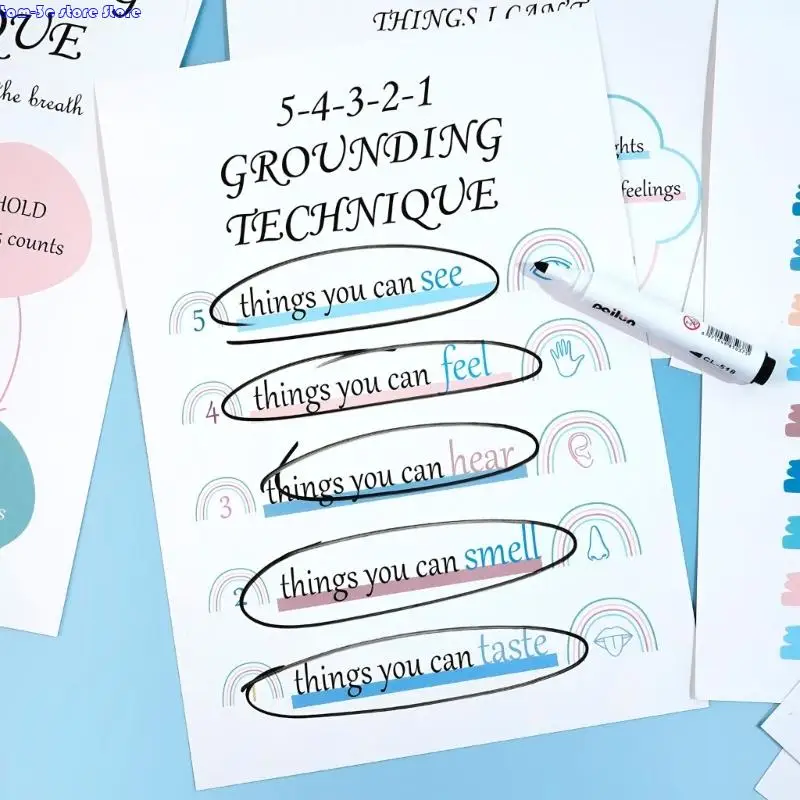 Tom-Se Store Store
QUE
the breath
HOLD
5 counts
THINGS I CAN'T
ghts
feelings
5-4-3-2-1
GROUNDING
TECHNIQUE
5 things you can see
4 things you can feel
3 things you can hear
2 things you can smell
things you can taste
peilun
CL-518